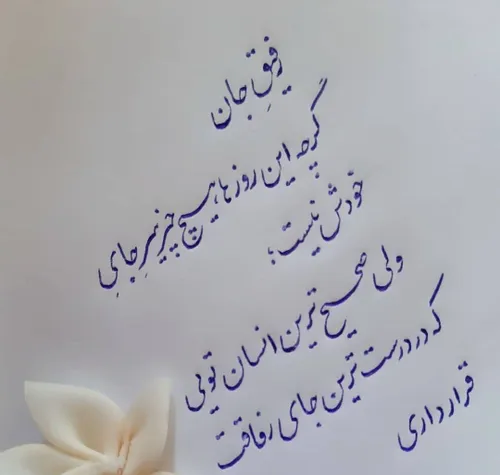 رفیقِ جان
گرچه این روزها هیچ چیز سرِ جایِ
خودش نیست؛
ولی صحیح ترین انسان تویی
که در درست ترین جای رفاقت
قرار داری